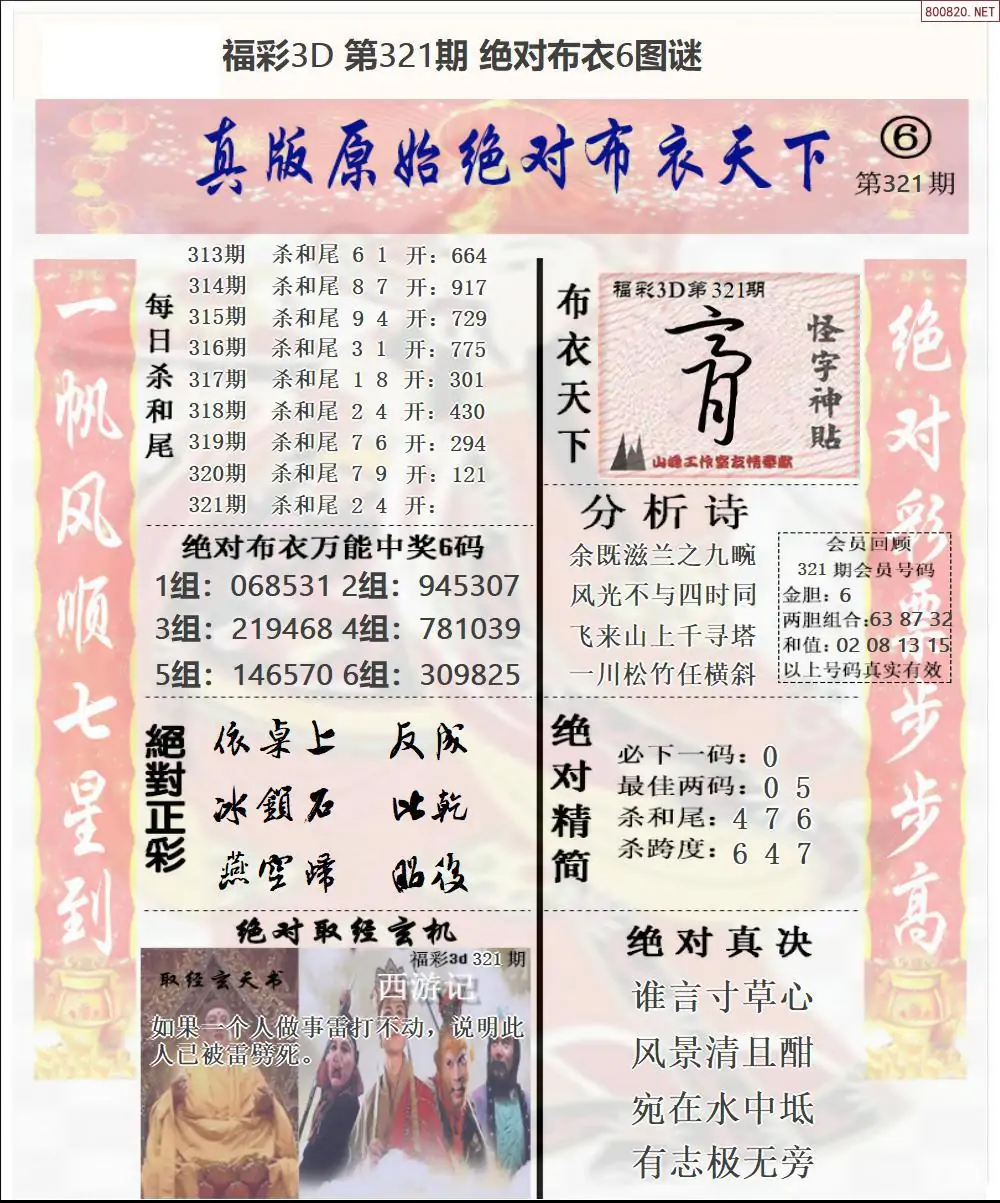 800820.NET
福彩3D 第321期 绝对布衣6图谜
真版原始绝对布衣天下
⑥
第321期
一帆风顺七星到
每日杀和尾
313期 杀和尾 6 1 开：664
314期 杀和尾 8 7 开：917
315期 杀和尾 9 4 开：729
316期 杀和尾 3 1 开：775
317期 杀和尾 1 8 开：301
318期 杀和尾 2 4 开：430
319期 杀和尾 7 6 开：294
320期 杀和尾 7 9 开：121
321期 杀和尾 2 4 开：
绝对布衣万能中奖6码
1组：068531 2组：945307
3组：219468 4组：781039
5组：146570 6组：309825
絕對正彩
依桌上 反成
冰鎖石 比乾
燕空歸 照役
绝对取经玄机
福彩3d 321期
取经玄天书
西游记
如果一个人做事雷打不动，说明此
人已被雷劈死。
布衣天下
福彩3D第321期
怪字神貼
山峰工作室友情奉献
分析诗
余既滋兰之九畹
风光不与四时同
飞来山上千寻塔
一川松竹任横斜
会员回顾
321期会员号码
金胆：6
两胆组合:63 87 32
和值：02 08 13 15
以上号码真实有效
绝对精简
必下一码：0
最佳两码：0 5
杀和尾：4 7 6
杀跨度：6 4 7
绝对真决
谁言寸草心
风景清且酣
宛在水中坻
有志极无旁
绝对彩票步步高